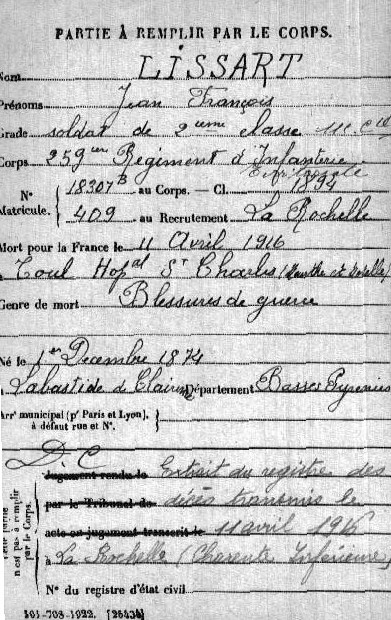 PARTIE À REMPLIR PAR LE CORPS.
Nom LISSART
Prénoms Jean François
Grade soldat de 2ieme classe 11e Cie
Corps 259em Régiment d'Infanterie
Territoriale
N° Matricule. { 18307B au Corps. — Cl. 1894
409 au Recrutement La Rochelle
Mort pour la France le 11 Avril 1916
à Toul Hopal St Charles (Meurthe et Moselle)
Genre de mort Blessures de guerre
Né le 1er Decembre 1874
à Labastide d Département Basses Pyrenées
Arrt municipal (pr Paris et Lyon), à défaut rue et N°.
D.C
Jugement rendu le Extrait du registre des
par le Tribunal de décès transmis le
acte ou jugement transcrit le 11 avril 1916
à La Rochelle (Charente Inférieure)
N° du registre d'état civil
n'est pas à remplir par le Corps.